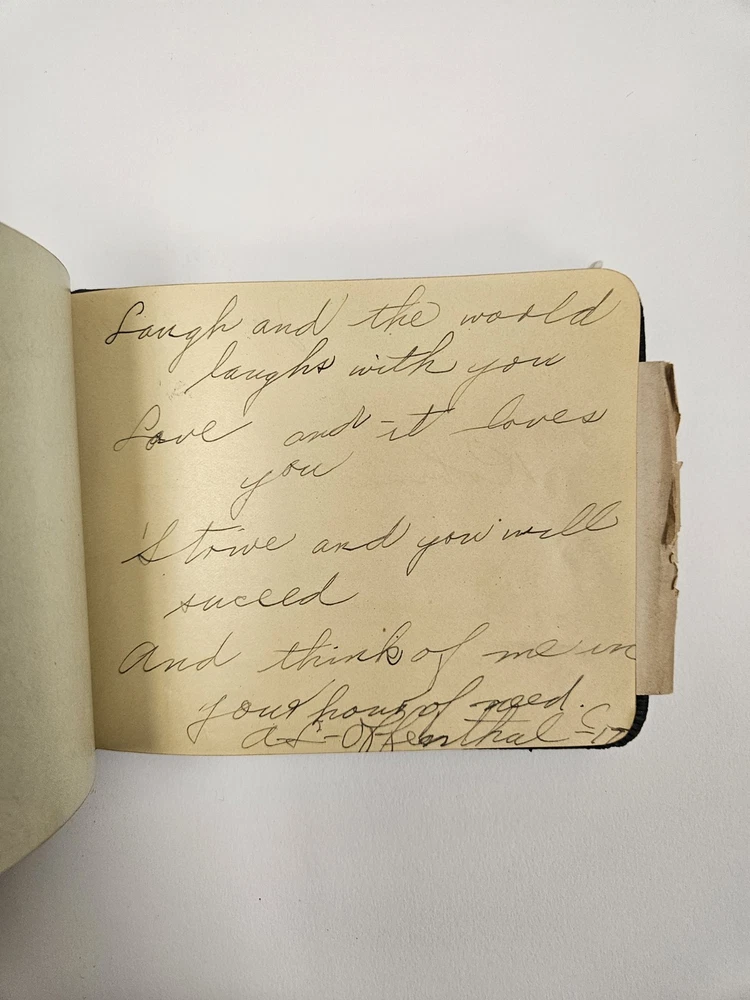 Laugh and the world
laughs with you
Love and it loves
you
Strive and you will
succeed
And think of me in
your hour of need.
Offenthal